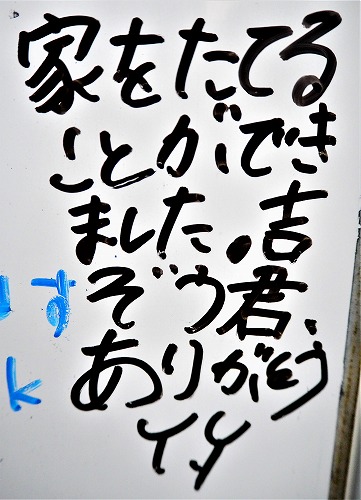 家をたてる
ことができ
ました。吉
ぞう君、
ありがとう
Y.Y
す
k